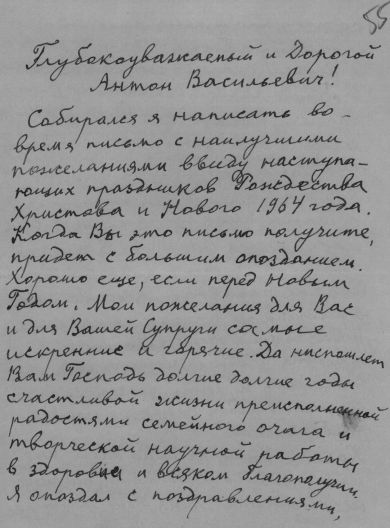 55
Глубокоуважаемый и Дорогой
Антон Васильевич!
Собирался я написать во-
время письмо с наилучшими
пожеланиями ввиду наступа-
ющих праздников Рождества
Христова и Нового 1964 года.
Когда Вы это письмо получите,
придет с большим опозданием.
Хорошо еще, если перед Новым
Годом. Мои пожелания для Вас
и для Вашей Супруги самые
искренние и горячие. Да ниспошлет
Вам Господь долгие долгие годы
счастливой жизни преисполненной
радостями семейного очага и
творческой научной работы
в здоровии и всяком Благополучии.
Я опоздал с поздравлениями,